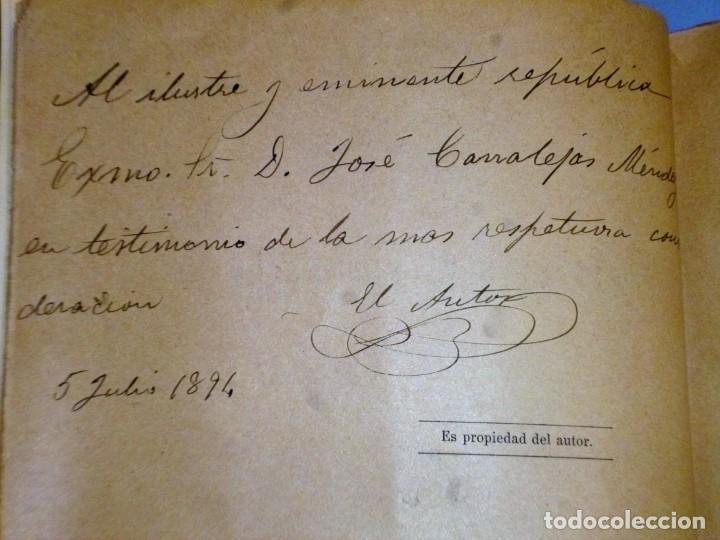 Al ilustre y eminente república
Exmo. Sr. D. José Carralejas Méndez
en testimonio de la mas respetuosa consi
deracion El Autor
5 Julio 1894
Es propiedad del autor.
todocoleccion
todocoleccion.net